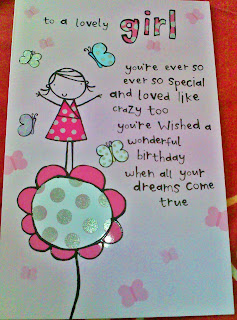 to a lovely girl
you're ever so
ever so special
and loved like
crazy too
you're wished a
wonderful
birthday
when all your
dreams come
true